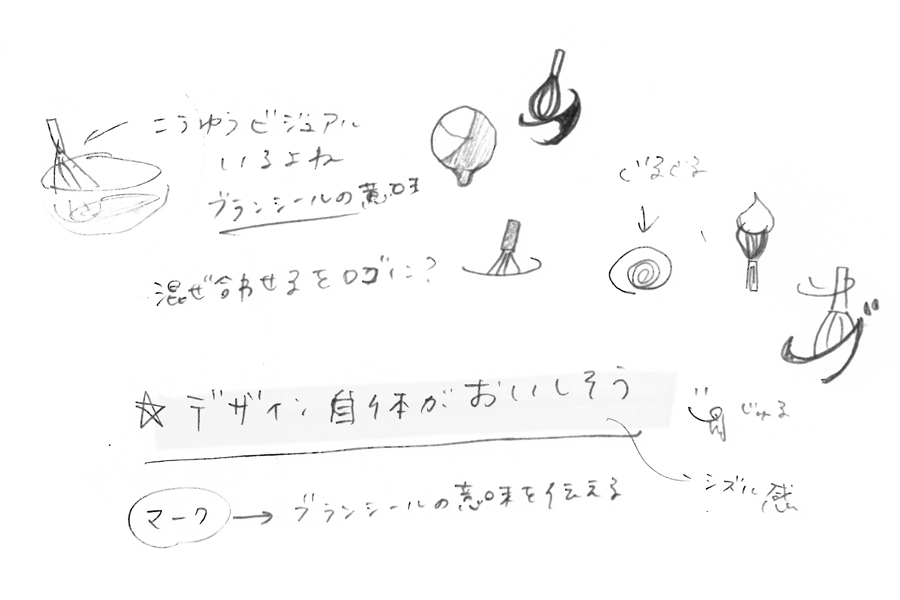 こうゆうビジュアル
いるよね
ブランシールの意味
ぐるぐる
混ぜ合わせるをロゴに？
☆ デザイン自体がおいしそう
じゅる
シズル感
マーク → ブランシールの意味を伝える